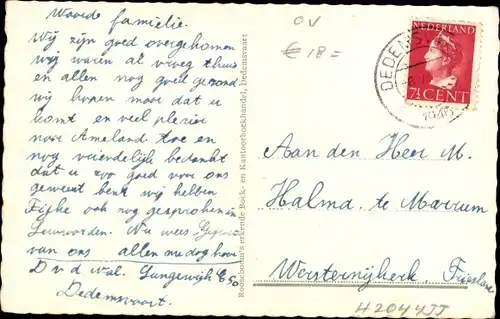 Waarde familie.
Wij zijn goed overgekomen
wij waren al vroeg thuis
en allen nog goed gezond
wij hopen maar dat u
komt en veel plezier
naar Ameland toe en
nog vriendelijk bedankt
dat u zoo goed voor ons
geweest bent wij hebben
Fijke ook nog gesproken in
Leeuwarden. Nu wees
van ons allen nu dag hoor
D v d Wal. Langewijk E 90
Dedemsvaart.
Rooseboom's erkende Boek- en Kantoorboekhandel, Dedemsvaart
OV
€ 18=
DEDEMS
1946
NEDERLAND
7½ CENT
Aan den Heer M.
Halma. te Marrum
Westernijkerk, Friesland
H2044JJ